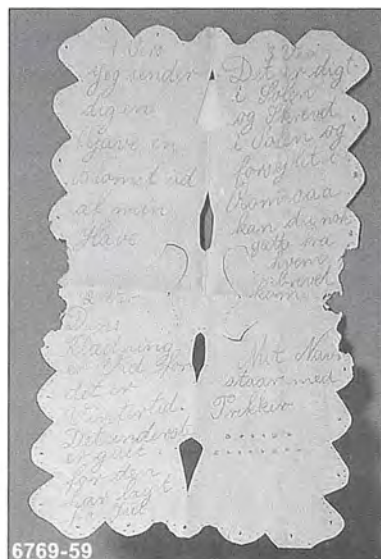 1 Vers
Jeg sender
dig en
Gave en
blomst ud
af min
Have
2 Vers
Dens
er hvid for
det er
Vintertid.
Det inderste
er gult
for den
har lagt
3 Vers
Det er digt
i Solen
og Skrevet
i Solen og
forseglit i
saa
kan du nok
gætte fra
hvem
brevet
kom
Mit Navn
staar med
Prikker
6769-59